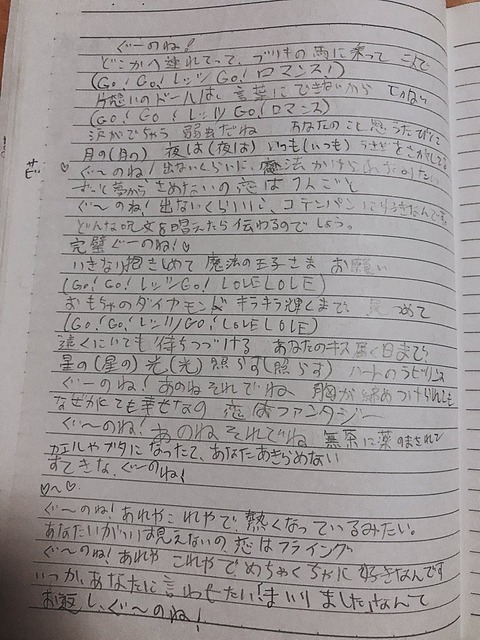 ぐーのね!
どこかへ連れてって、ブリキの馬に乗って
(Go! Go! レッツ Go! ロマンス!)
片想いのドールは、言葉にできないから
(Go! Go! レッツ Go! ロマンス)
涙がでちゃう 弱虫だね あなたのこと思うたびに
月の(月の) 夜は(夜は) いつも(いつも) うさぎをさがしてる
サビ
♡ ぐ〜のね! 出ないくらいに、魔法かけられたい
ずっと夢からさめないの、恋は
ぐ〜のね! 出ないくらいに、コテンパンにすきなんです。
どんな呪文を唱えたら伝わるのでしょう。
完璧ぐーのね!♡
いきなり抱きしめて 魔法の王子さま お願い
(Go! Go! レッツ Go! LOVE LOVE)
おもちゃのダイヤモンド キラキラ輝くまで、見つめて
(Go! Go! レッツ Go! LOVE LOVE)
遠くにいても待ちつづける あなたのキス届く日まで
星の(星の) 光(光) 照らす(照らす) ハートのラビリンス
ぐーのね! あのねそれでね、胸が締めつけられても
なぜかとても幸せなの 恋はファンタジー
ぐ〜のね! あのねそれでね 無茶に薬のまされて
カエルやブタになったて、あなたあきらめない
すてきな、ぐーのね!
♡〜♡
ぐ〜のね! あれやこれやで、熱くなっているみたい。
あなたいがいは見えないの、恋はフライング
ぐ〜のね! あれやこれやでめちゃくちゃに好きなんです
いつか、あなたに言わせたい!まいりましたなんて
お返し、ぐ〜のね!